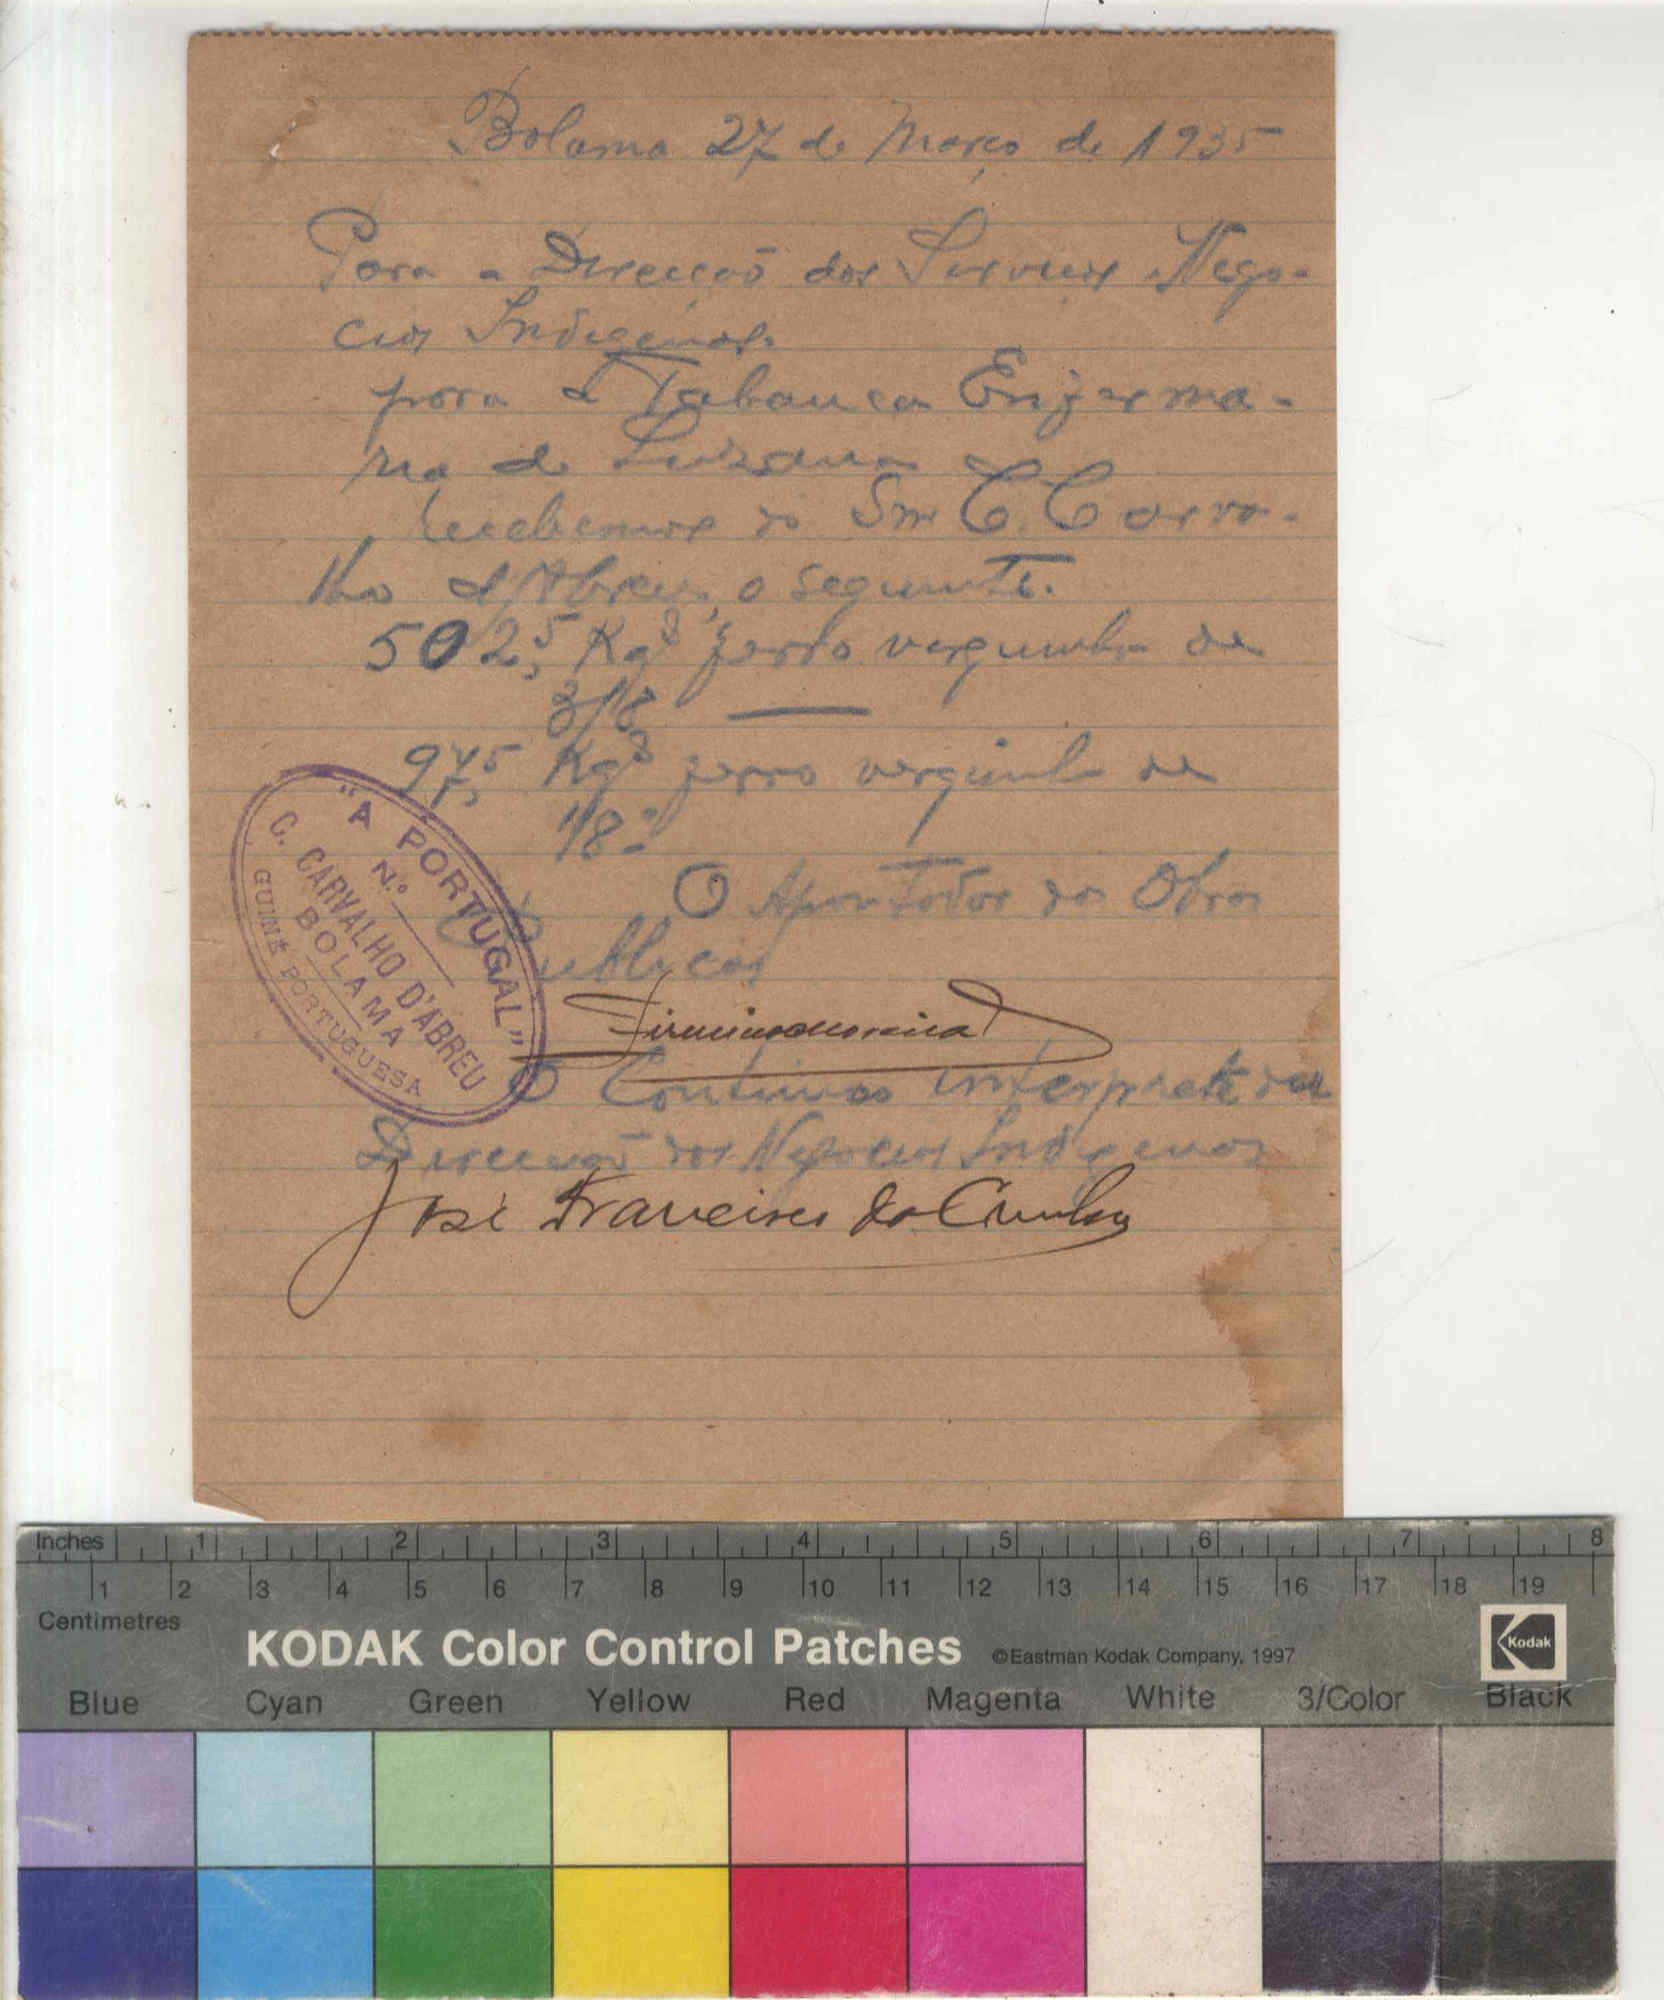 Bolama 27 de Março de 1935
Para a Direcção dos Serviços Nego-
cios Indigenas.
para a Tabanca Enferma-
ria de
Recebemos do Snr C. Carva-
lho d'Abreu, o seguinte.
502,5 Kgs ferro verguinha de
3/8
97,5 Kgs ferro verguinha de
1/8
O Apontador das Obras
Publicas
O Continuo interprete da
Direcção dos Negocios Indigenas
José Francisco da Cunha
"A PORTUGAL"
N.º
C. CARVALHO D'ABREU
BOLAMA
GUINÉ PORTUGUESA
Inches 1 2 3 4 5 6 7 8
1 2 3 4 5 6 7 8 9 10 11 12 13 14 15 16 17 18 19
Centimetres
KODAK Color Control Patches ©Eastman Kodak Company, 1997 Kodak
Blue Cyan Green Yellow Red Magenta White 3/Color Black